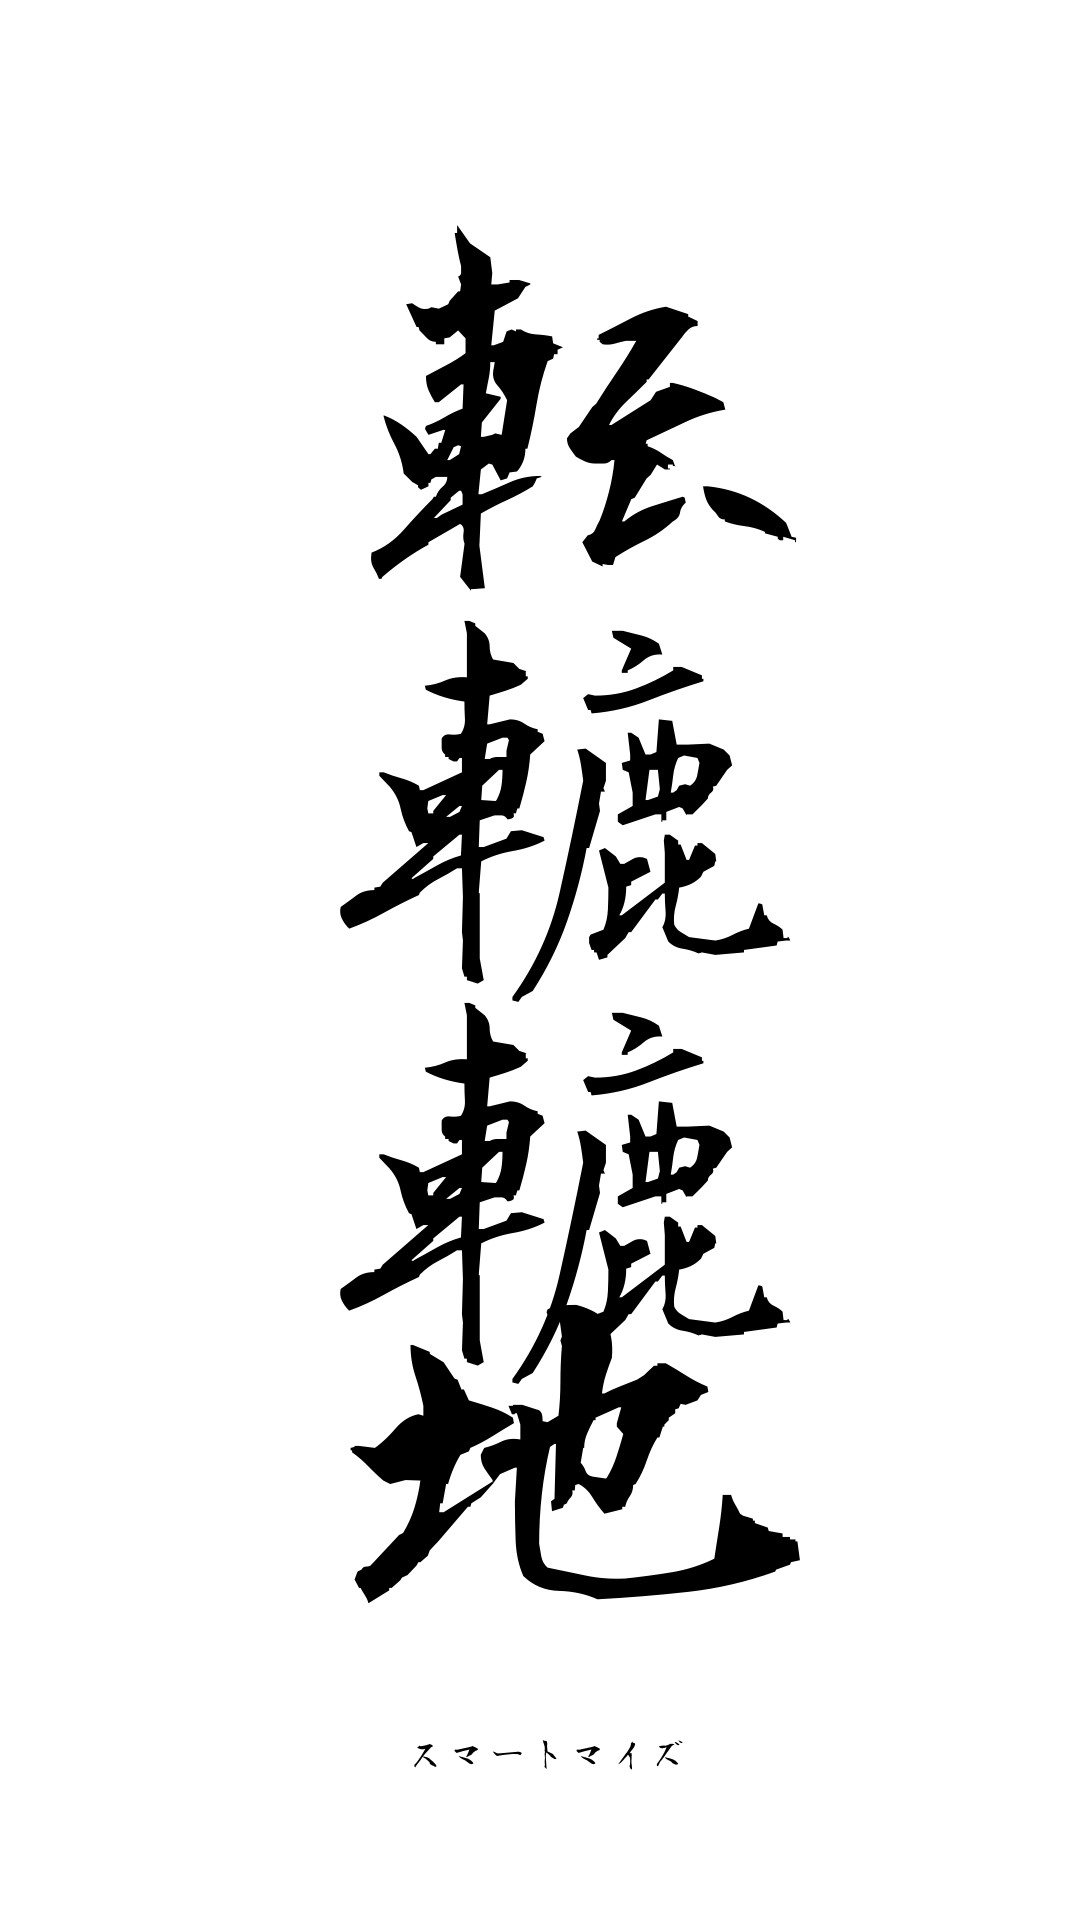 転轆轆地
スマートマイズ